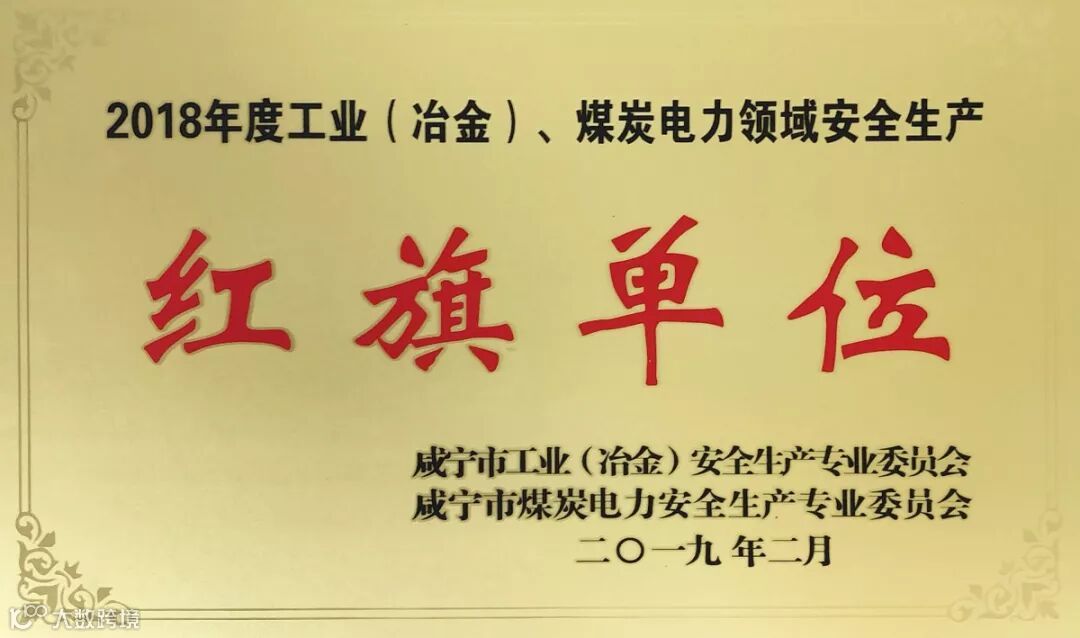 2018年度工业（冶金）、煤炭电力领域安全生产
红旗单位
咸宁市工业（冶金）安全生产专业委员会
咸宁市煤炭电力安全生产专业委员会
二〇一九 年二月
大数跨境